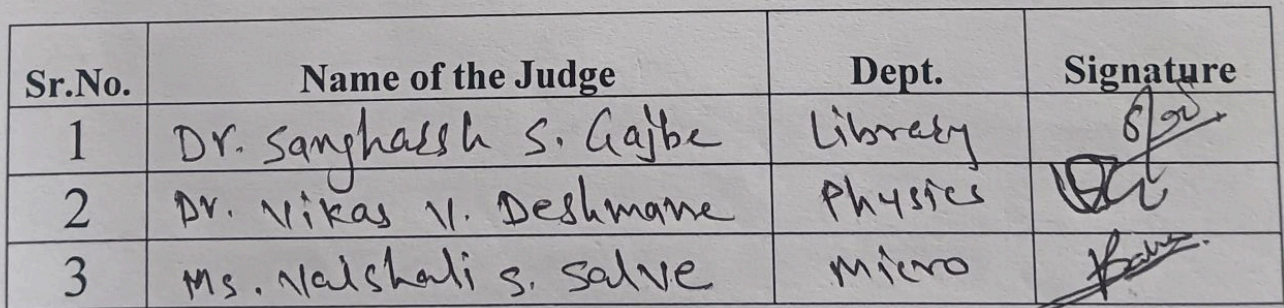 Sr.No. Name of the Judge Dept. Signature
1 Dr. Sangharsh S. Gajbe Library
2 Dr. Vikas V. Deshmane Physics
3 Ms. Vaishali S. Salve Micro